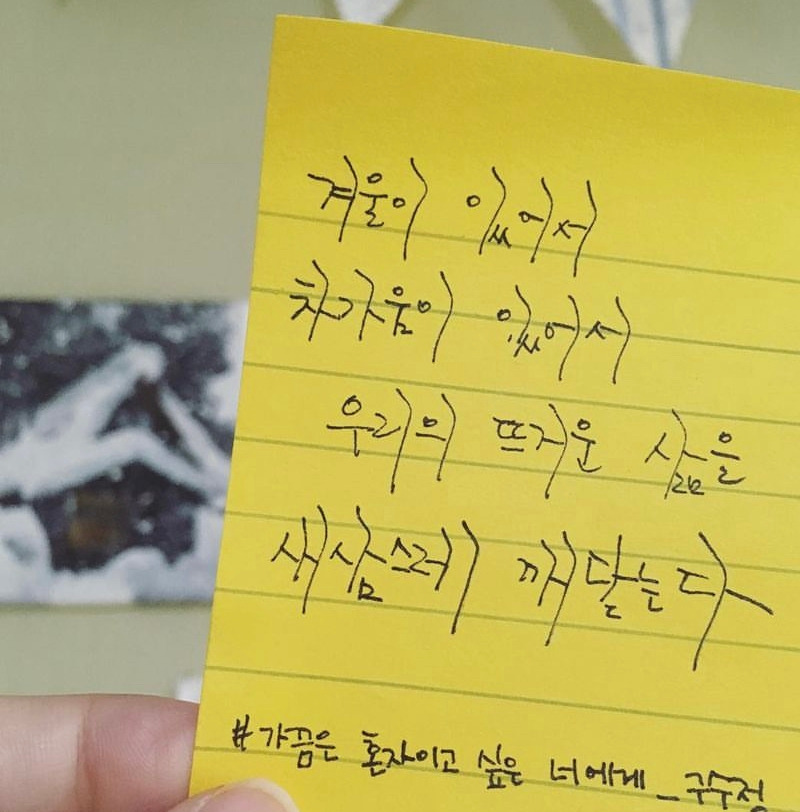 겨울이 있어서
차가움이 있어서
우리의 뜨거운 삶을
새삼스레 깨달는다
#가끔은 혼자이고 싶은 너에게_구수정